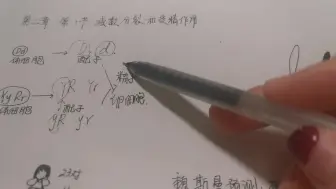 第二章 第1节 减数分裂和受精作用
Dd → D d
体细胞 配子
YyRr → YR Yr
体细胞 配子
yR yr
精子
卵细胞
23对